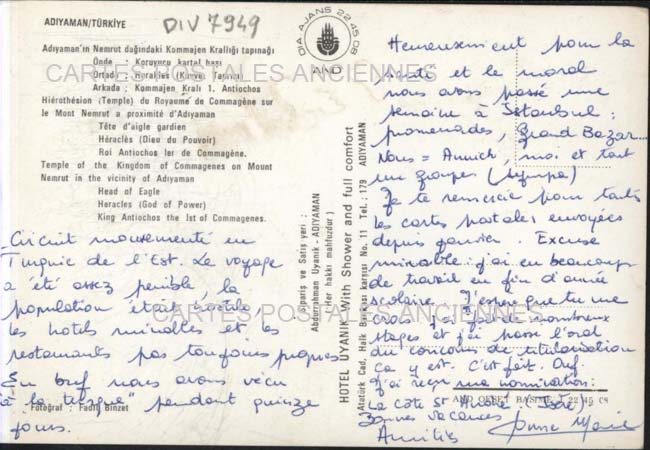 ADIYAMAN/TÜRKİYE
DIV 7949
DIA - AJANS 22 45 08
AND
Adıyaman'ın Nemrut dağındaki Kommajen Krallığı tapınağı
Önde : Koruyucu kartal başı
Ortada : Herakles (Kuvvet Tanrısı)
Arkada : Kommajen Kralı 1. Antiochos
Hiérothésion (Temple) du Royaume de Commagène sur
le Mont Nemrut a proximité d'Adıyaman
Tête d'aigle gardien
Héraclès (Dieu du Pouvoir)
Roi Antiochos Ier de Commagène.
Temple of the Kingdom of Commagenes on Mount
Nemrut in the vicinity of Adıyaman
Head of Eagle
Heracles (God of Power)
King Antiochos the Ist of Commagenes.
CARTES POSTALES ANCIENNES
Circuit mouvementé en
Turquie de l'Est. Le voyage
a été assez pénible, la
population était hostile,
CARTES POSTALES ANCIENNES
les hôtels minables et les
restaurants pas toujours propres
En bref nous avons vécu
"à la turque" pendant quinze
jours.
Fotoğraf : Fadıl Binzet
Sipariş ve Satış yeri :
Abdurrahman Uyanık - ADIYAMAN
(Her hakkı mahfuzdur)
HOTEL UYANIK With Shower and full comfort
Atatürk Cad, Halk Bankası karşısı No. 11 Tel.: 179 ADIYAMAN
Heureusement pour la
santé et le moral
nous avons passé une
semaine à Istanbul :
promenades, Grand Bazar...
Nous = Annick, moi et tout
un groupe (sympa)
Je te remercie pour toutes
les cartes postales envoyées
depuis janvier. Excuse
minable : j'ai eu beaucoup
de travail en fin d'année
scolaire. J'espère que tu me
crois. J'ai fait de nombreux
stages et j'ai passé l'oral
du concours de titularisation
Ça y est. C'est fait. Ouf.
J'ai reçu ma nomination :
La Côte St André (Isère).
AND OFSET BASIMEVİ 22 45 08
Bonnes vacances
Amitiés
Anne Marie